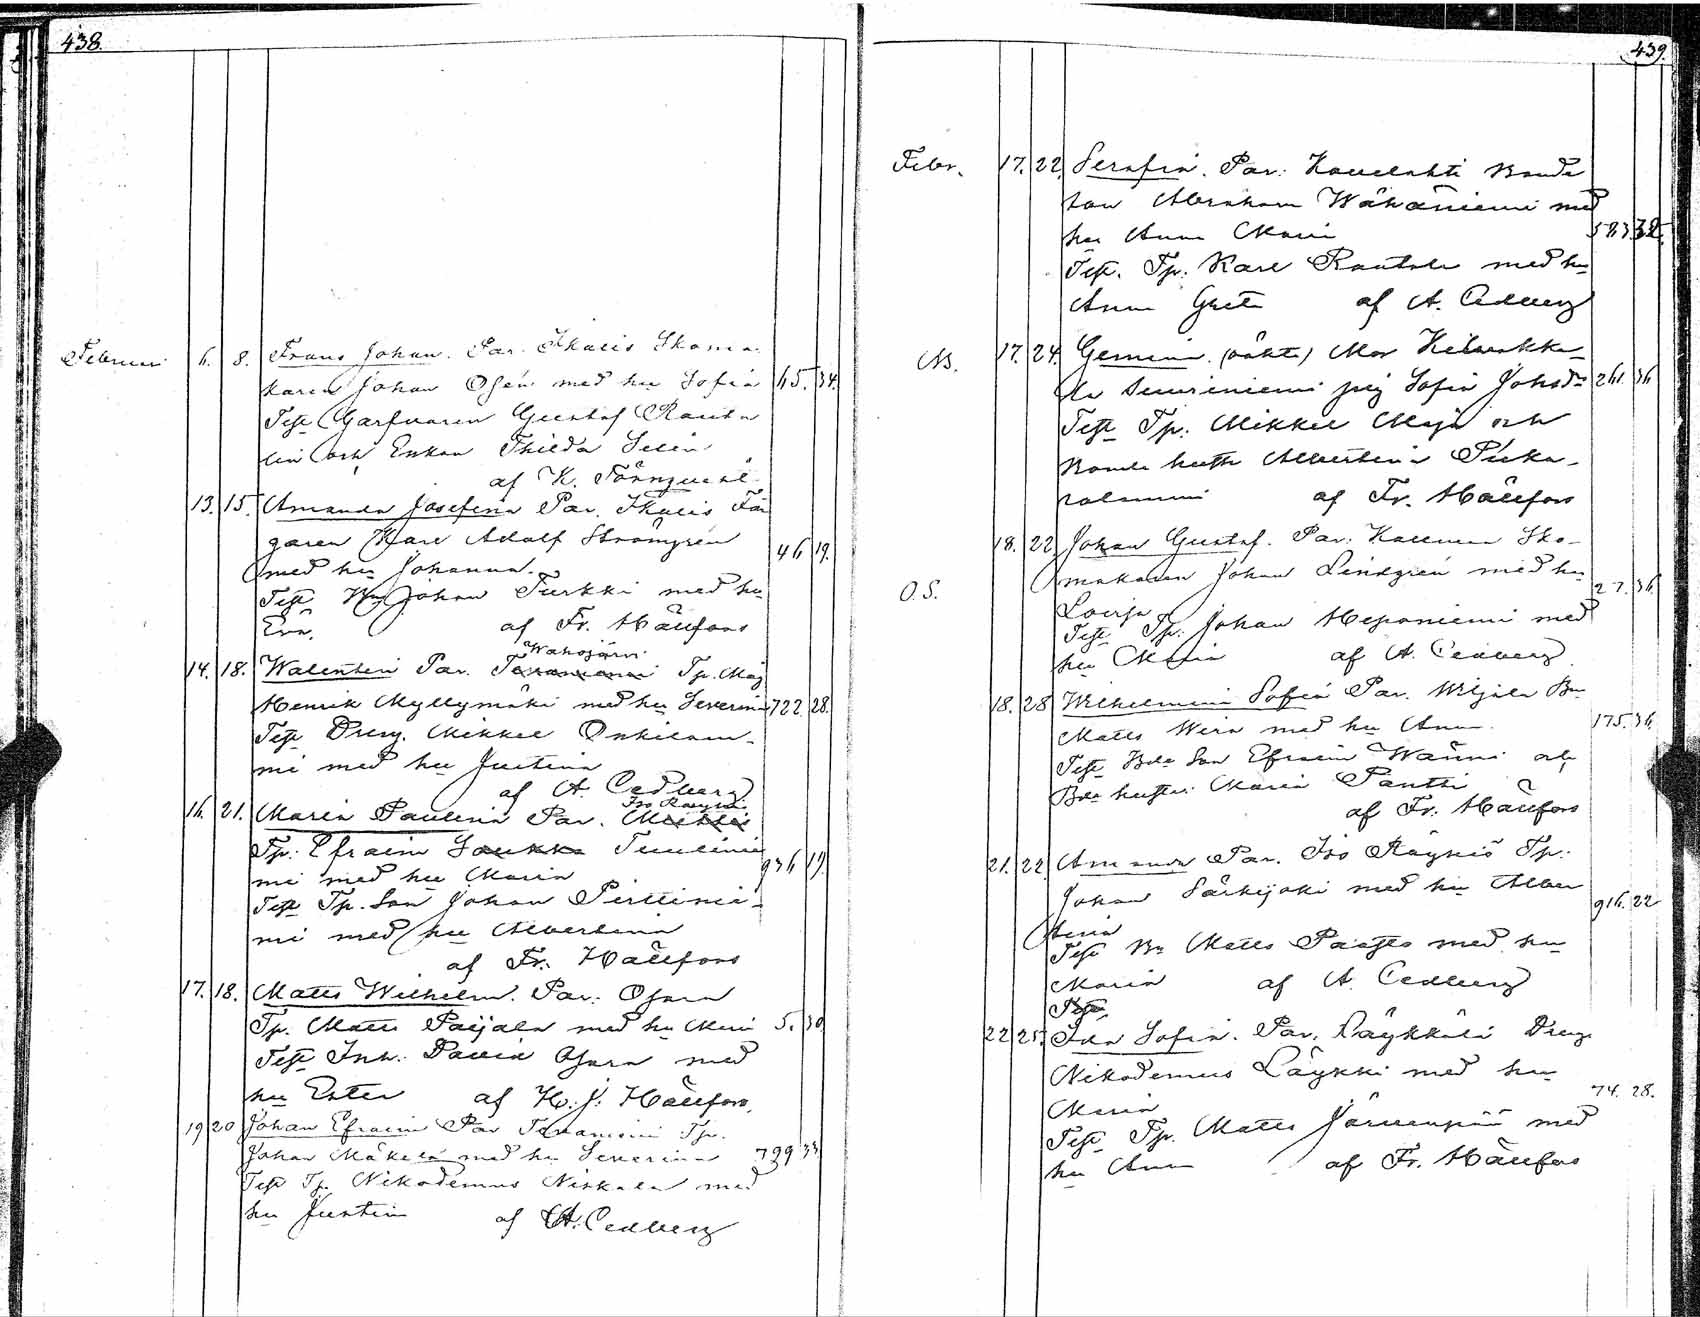 438.
Februari 6. 8. Frans Johan. Par. Ikalis Skoma-
karen Johan Ofén med hu Sofia 65. 34.
Test Garfvaren Gustaf Ranta
lin och Enkan Thilda Selin
af K. Törnqvist
13. 15. Amanda Josefina Par. Ikalis Fär
garen Karl Adolf Strömgren 46 19.
med hu Johanna.
Test Johan Turkki med hu
Eva. af Fr. Hällfors
Wahojärvi
14. 18. Walentin Par. Tp. Måg
Henrik Myllymäki med hu Severina 722 28.
Test Dreng. Mikkel Onkilam-
mi med hu Justina
af A. Cedberg
Iso Röyhiö
16. 21. Maria Paulina Par.
Tp. Efraim Tuulinie 936 19.
mi med hu Maria
Test Tp. Son Johan Perttinie-
mi med hu Albertina
af Fr. Hällfors
17. 18. Matts Wilhelm. Par. Osara
Tp. Matts Paijala med hu Mari 5. 30
Test Inh. David Osara med
hu Ester af H. J. Hällfors.
19 20 Johan Efraim Par Tp.
Johan Mäkelä med hu Severina 799 33
Test Tp. Nikodemus Niskala med
hu Justina af A. Cedberg
439.
Febr. 17. 22. Serafia. Par: Kovelahti Bonde
son Abraham Wähäniemi med
hu Anna Maria 583 32.
Test. Tp. Karl Rantala med hu
Anna Greta af A. Cedberg
NB. 17. 24. Gemina. (oäkta) Mor Kilvakka-
la Suuriniemi pig Sofia Johsdr 261. 36
Test Tp. Mikkel Maja och
Bonde hustr Albertina Pirka-
salmini af Fr. Hällfors
18. 22 Johan Gustaf. Par: Sko-
makaren Johan Lindgren med hu 27. 36.
O.S. Lovisa
Test Tp. Johan Heponiemi med
hu Maria af A. Cedberg.
18. 28 Wilhelmina Sofia Par. Wiljala Bn
Matts Wira med hu Anna. 175. 36.
Test Bde Son Efraim Wänni och
Bde hustru. Maria Pantti
af Fr. Hällfors
21. 22. Amanda Par. Iso Röyhiö Tp.
Johan Särkijoki med hu Alber 916. 22
tina
Test Bn Matts med hu
Maria af A. Cedberg
22 25. Ida Sofia. Par. Läykkälä Dreng
Nikodemus Läykki med hu
Maria 74. 28.
Test Tp. Matts Järvenpää med
hu Anna af Fr. Hällfors